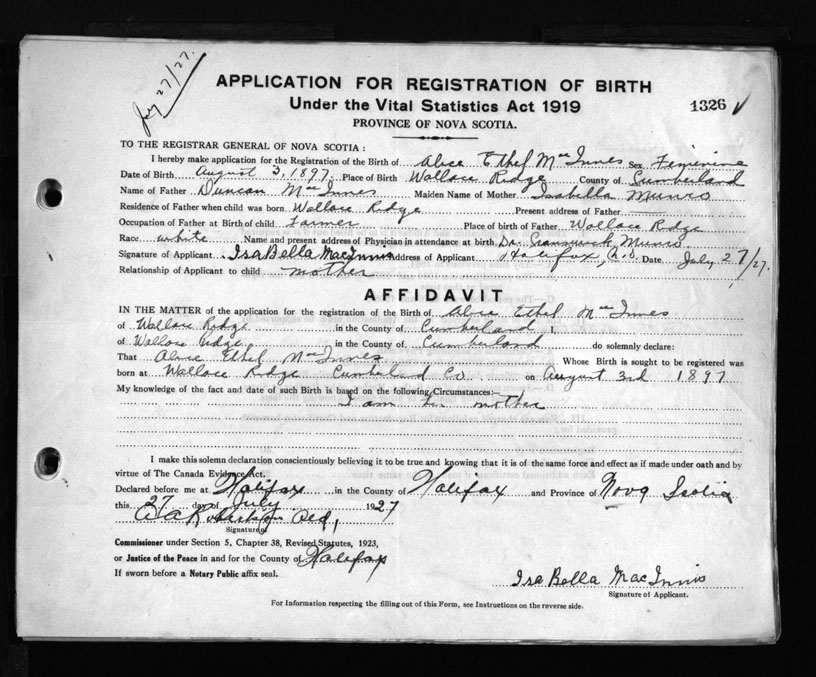 July 27/27.
APPLICATION FOR REGISTRATION OF BIRTH
Under the Vital Statistics Act 1919
1326
PROVINCE OF NOVA SCOTIA.
TO THE REGISTRAR GENERAL OF NOVA SCOTIA:
I hereby make application for the Registration of the Birth of Alice Ethel MacInnes Sex Feminine
Date of Birth August 3, 1897 Place of Birth Wallace Ridge County of Cumberland
Name of Father Duncan MacInnes Maiden Name of Mother Isabella Munro
Residence of Father when child was born Wallace Ridge Present address of Father
Occupation of Father at Birth of child Farmer Place of birth of Father Wallace Ridge
Race white Name and present address of Physician in attendance at birth Dr. Munro
Signature of Applicant IsaBella MacInnis Address of Applicant Halifax, N.S. Date July 27/27.
Relationship of Applicant to child mother
AFFIDAVIT
IN THE MATTER of the application for the registration of the Birth of Alice Ethel MacInnes
of Wallace Ridge in the County of Cumberland I,
of Wallace Ridge in the County of Cumberland do solemnly declare:
That Alice Ethel MacInnes Whose Birth is sought to be registered was
born at Wallace Ridge Cumberland Co on August 3rd 1897
My knowledge of the fact and date of such Birth is based on the following Circumstances:—
I am her mother
I make this solemn declaration conscientiously believing it to be true and knowing that it is of the same force and effect as if made under oath and by
virtue of The Canada Evidence Act.
Declared before me at Halifax in the County of Halifax and Province of Nova Scotia
this 27 day of July 1927
Signature of
Commissioner under Section 5, Chapter 38, Revised Statutes, 1923,
or Justice of the Peace in and for the County of Halifax
If sworn before a Notary Public affix seal.
IsaBella MacInnis
Signature of Applicant.
For Information respecting the filling out of this Form, see Instructions on the reverse side.